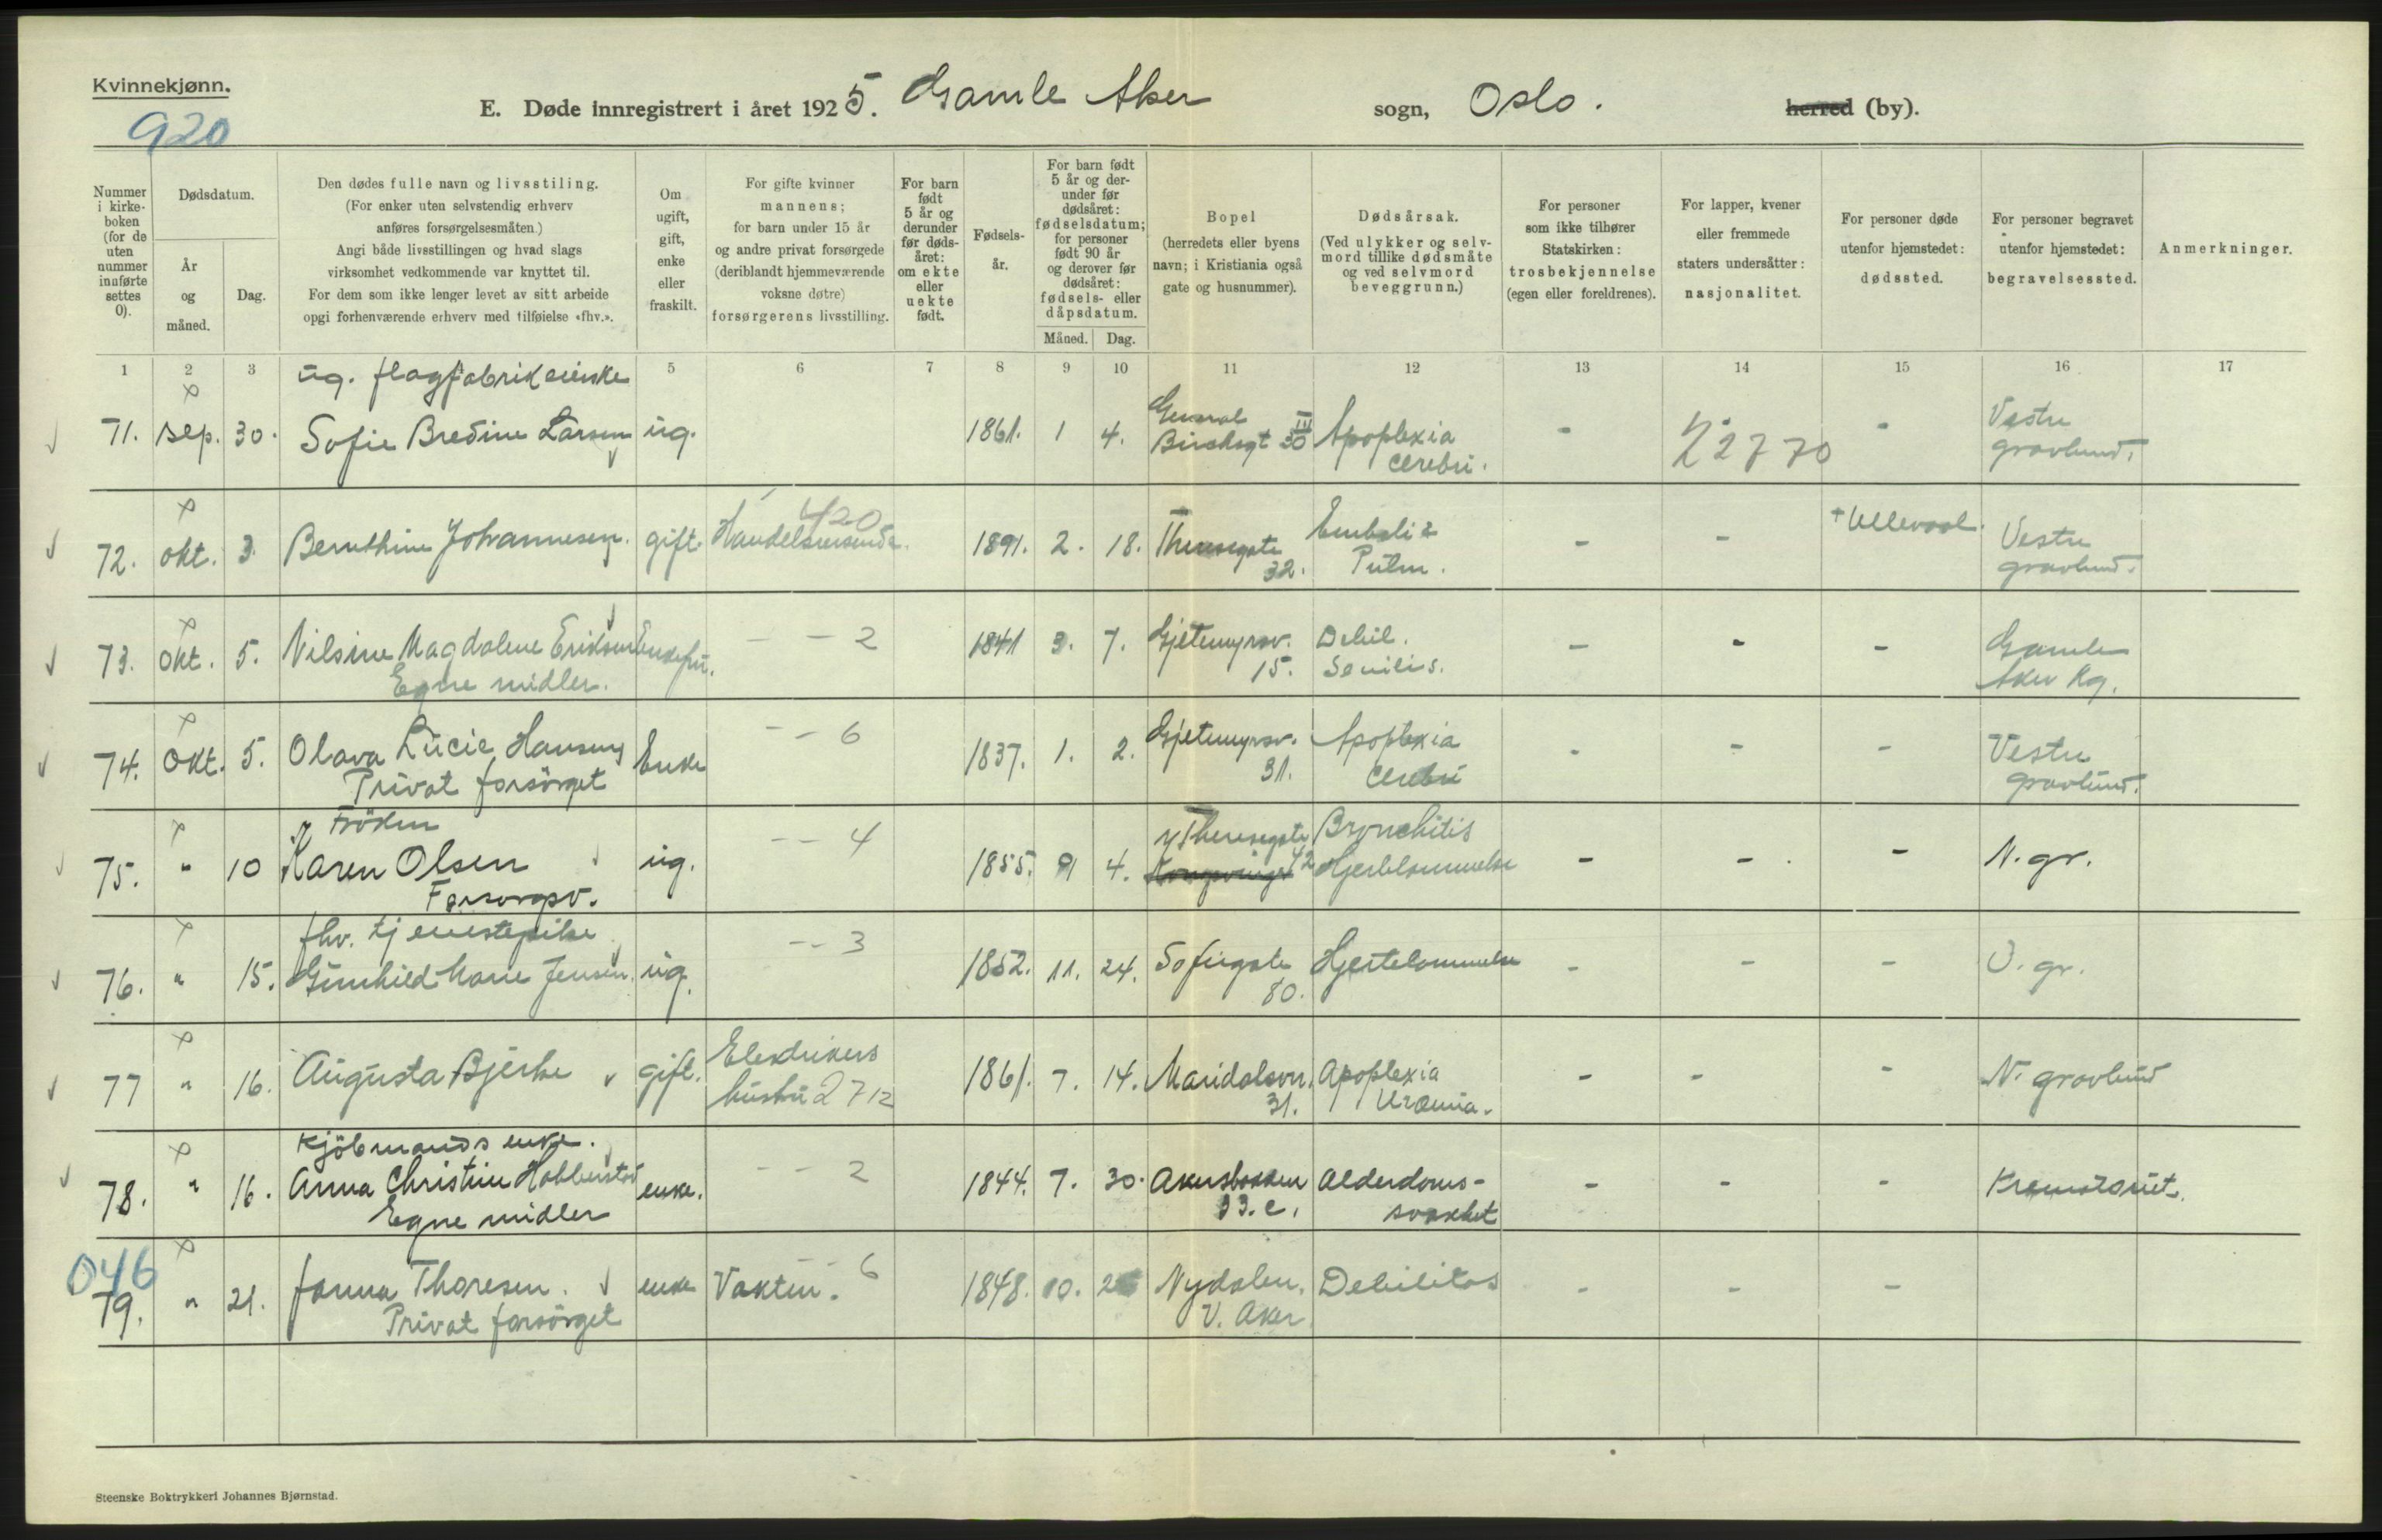 Kvinnekjønn.
920
E. Døde innregistrert i året 1925. Gamle Aker sogn, Oslo. herred (by).
Nummer i kirkeboken (for de uten nummer innførte settes 0).
Dødsdatum.
År og måned.
Dag.
Den dødes fulle navn og livsstiling.
(For enker uten selvstendig erhverv
anføres forsørgelsesmåten.)
Angi både livsstillingen og hvad slags
virksomhet vedkommende var knyttet til.
For dem som ikke lenger levet av sitt arbeide
opgi forhenværende erhverv med tilføielse «fhv.».
Om ugift, gift, enke eller fraskilt.
For gifte kvinner
mannens;
for barn under 15 år
og andre privat forsørgede
(deriblandt hjemmeværende
voksne døtre)
forsørgerens livsstilling.
For barn født 5 år og derunder før dødsåret: om ekte eller uekte født.
Fødselsår.
For barn født 5 år og derunder før dødsåret: fødselsdatum; for personer født 90 år og derover før dødsåret: fødsels- eller dåpsdatum.
Måned. Dag.
Bopel
(herredets eller byens
navn; i Kristiania også
gate og husnummer).
Dødsårsak.
(Ved ulykker og selvmord tillike dødsmåte
og ved selvmord
beveggrunn.)
For personer
som ikke tilhører
Statskirken:
trosbekjennelse
(egen eller foreldrenes).
For lapper, kvener
eller fremmede
staters undersåtter:
nasjonalitet.
For personer døde
utenfor hjemstedet:
dødssted.
For personer begravet
utenfor hjemstedet:
begravelsessted.
Anmerkninger.
1 2 3 5 6 7 8 9 10 11 12 13 14 15 16 17
ug. flagfabrikeierske
71. sep. 30. Sofie Bredine Larsen ug. 1861. 1 4. General Birchsgt 30 III Apoplexia cerebri. - 2770 - Vestre gravlund.
72. okt. 3. Bernthine Johannesen. gift. Handelsreisende. 420 1891. 2. 18. Theresegate 32. Emboli Pulm. - - + Ullevaal. Vestre gravlund.
73. okt. 5. Nilsine Magdalene Eriksen Enkefru. - - 2 1841 3. 7. Gjetemyrsv. 15. Debil. Senilis. - - - Gamle Aker Kg.
Egne midler.
74. Okt. 5. Olava Lucie Hansen Enke - - 6 1837. 1. 2. Gjetemyrsv. 31. Apoplexia cerebri - - - Vestre gravlund.
Privat forsörget
Fröken
75. " 10 Karen Olsen ug. - - 4 1855. 9 4. Theresegate 42 Bronchitis Hjertelammelse - - - N. gr.
Forsorgsv.
fhv. tjenestepike
76. " 15. Gunhild Marie Jensen. ug. - - 3 1852. 11. 24. Sofiegate 80. Hjertelammelse - - - V. gr.
77 " 16. Augusta Bjerke gift. Elektrikers hustru 2712 1861. 7. 14. Maridalsvn. 31. Apoplexia Uræmia. - - - N. gravlund
Kjöbmands enke.
78. " 16. Anna Christine Hobberstad enke. - - 2 1844. 7. 30. Akersbakken 33. c. Alderdomssvakhet - - - Krematoriet.
Egne midler
046
79. " 21. Janna Thoresen. enke Vaktm. 6 1848. 10. Nydalen. V. Aker Debilitas - - -
Privat forsörget
Steenske Boktrykkeri Johannes Bjørnstad.